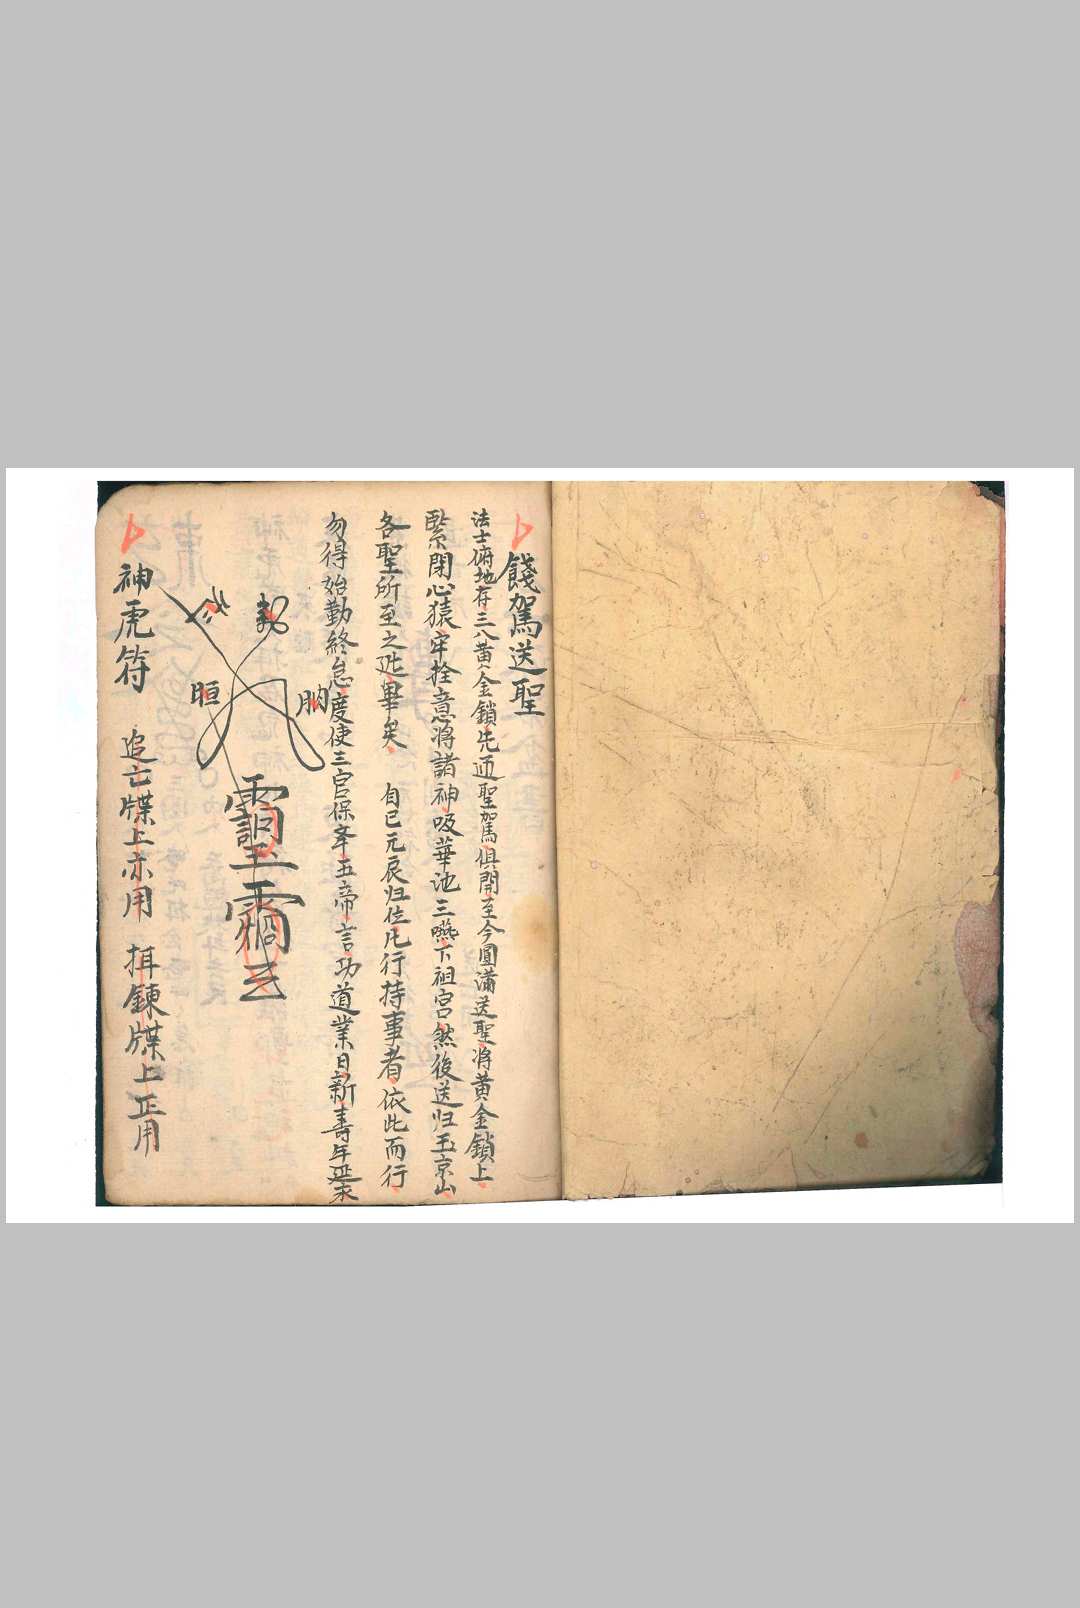 餞駕送聖
法士俯地存三八黃金鎖先迊聖駕俱開至今圓滿送聖將黃金鎖上
緊閉心猿牢拴意將諸神吸華池三嚥下祖宮然後送归玉京山
各聖所至之阯畢矣 自己元辰归位凡行持事者依此而行
勿得始勤終怠度使三官保奉五帝言功道業日新壽年延永
神虎符
追亡牒上亦用 揖鍊牒上正用